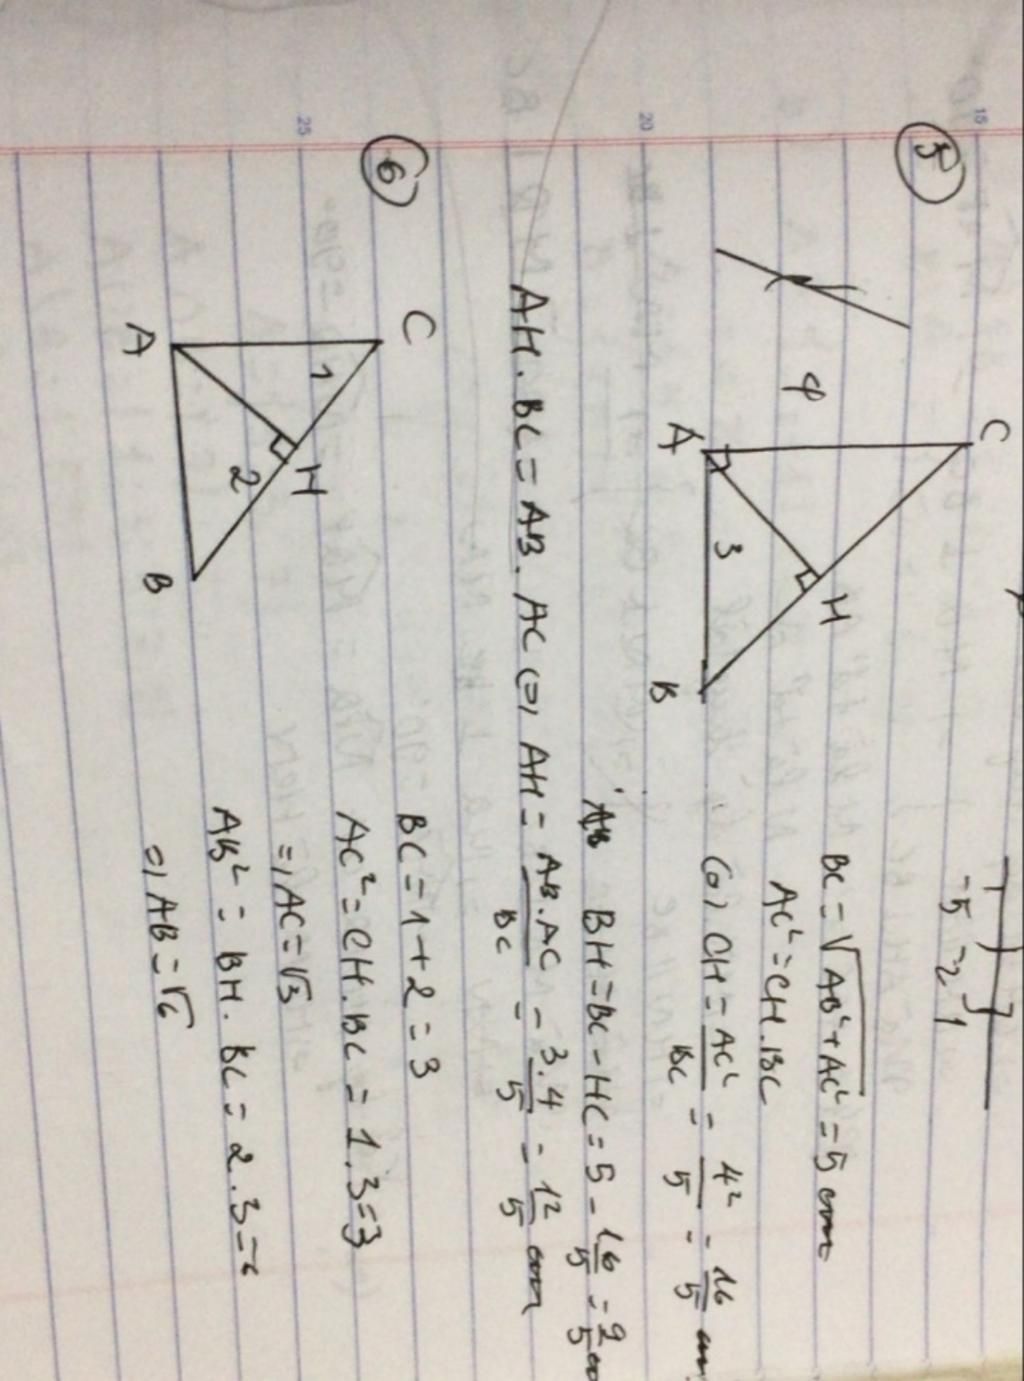 -5 -2 1
5
C
4
A
3
H
B
BC = √AB² + AC² = 5 cm
AC² = CH.BC
(=) CH = AC²/BC = 4²/5 = 16/5 cm
BH = BC - HC = 5 - 16/5 = 9/5 cm
AH.BC = AB.AC (=) AH = AB.AC/BC = 3.4/5 = 12/5 cm
6
C
1
H
2
A
B
BC = 1 + 2 = 3
AC² = CH.BC = 1.3 = 3
=) AC = √3
AB² = BH.BC = 2.3 = 6
=) AB = √6
15
20
25